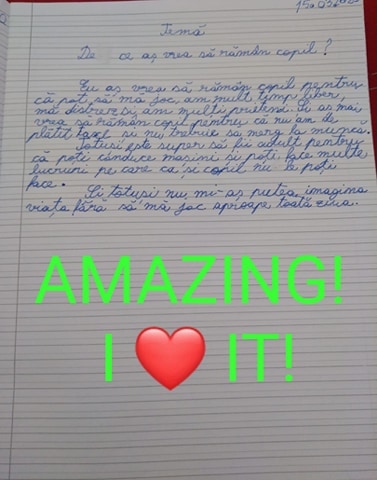 15.03.
Temă
De ce aș vrea să rămân copil?
Eu aș vrea să rămân copil pentru
că pot să mă joc, am mult timp liber,
mă distrez și am mulți prieteni. Și aș mai
vrea să rămân copil pentru că nu am de
plătit taxe și nu trebuie să merg la muncă.
Totuși este super să fii adult pentru
că poți conduce mașini și poți face multe
lucruri pe care ca și copil nu le poți
face.
Și totuși nu mi-aș putea imagina
viața fără să mă joc aproape toată ziua.
AMAZING!
I ❤️ IT!